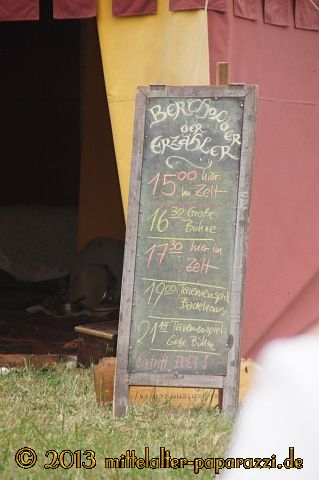 Bercholder
der
Erzähler
15:00 hier
im Zelt
16 30 Große
Bühne
17 30 hier im
Zelt
19 00 Tavernenspiel
Badehaus
21 15 Tavernenspiel
Große Bühne
Eintritt FREI!
© 2013 mittelalter-paparazzi.de ©